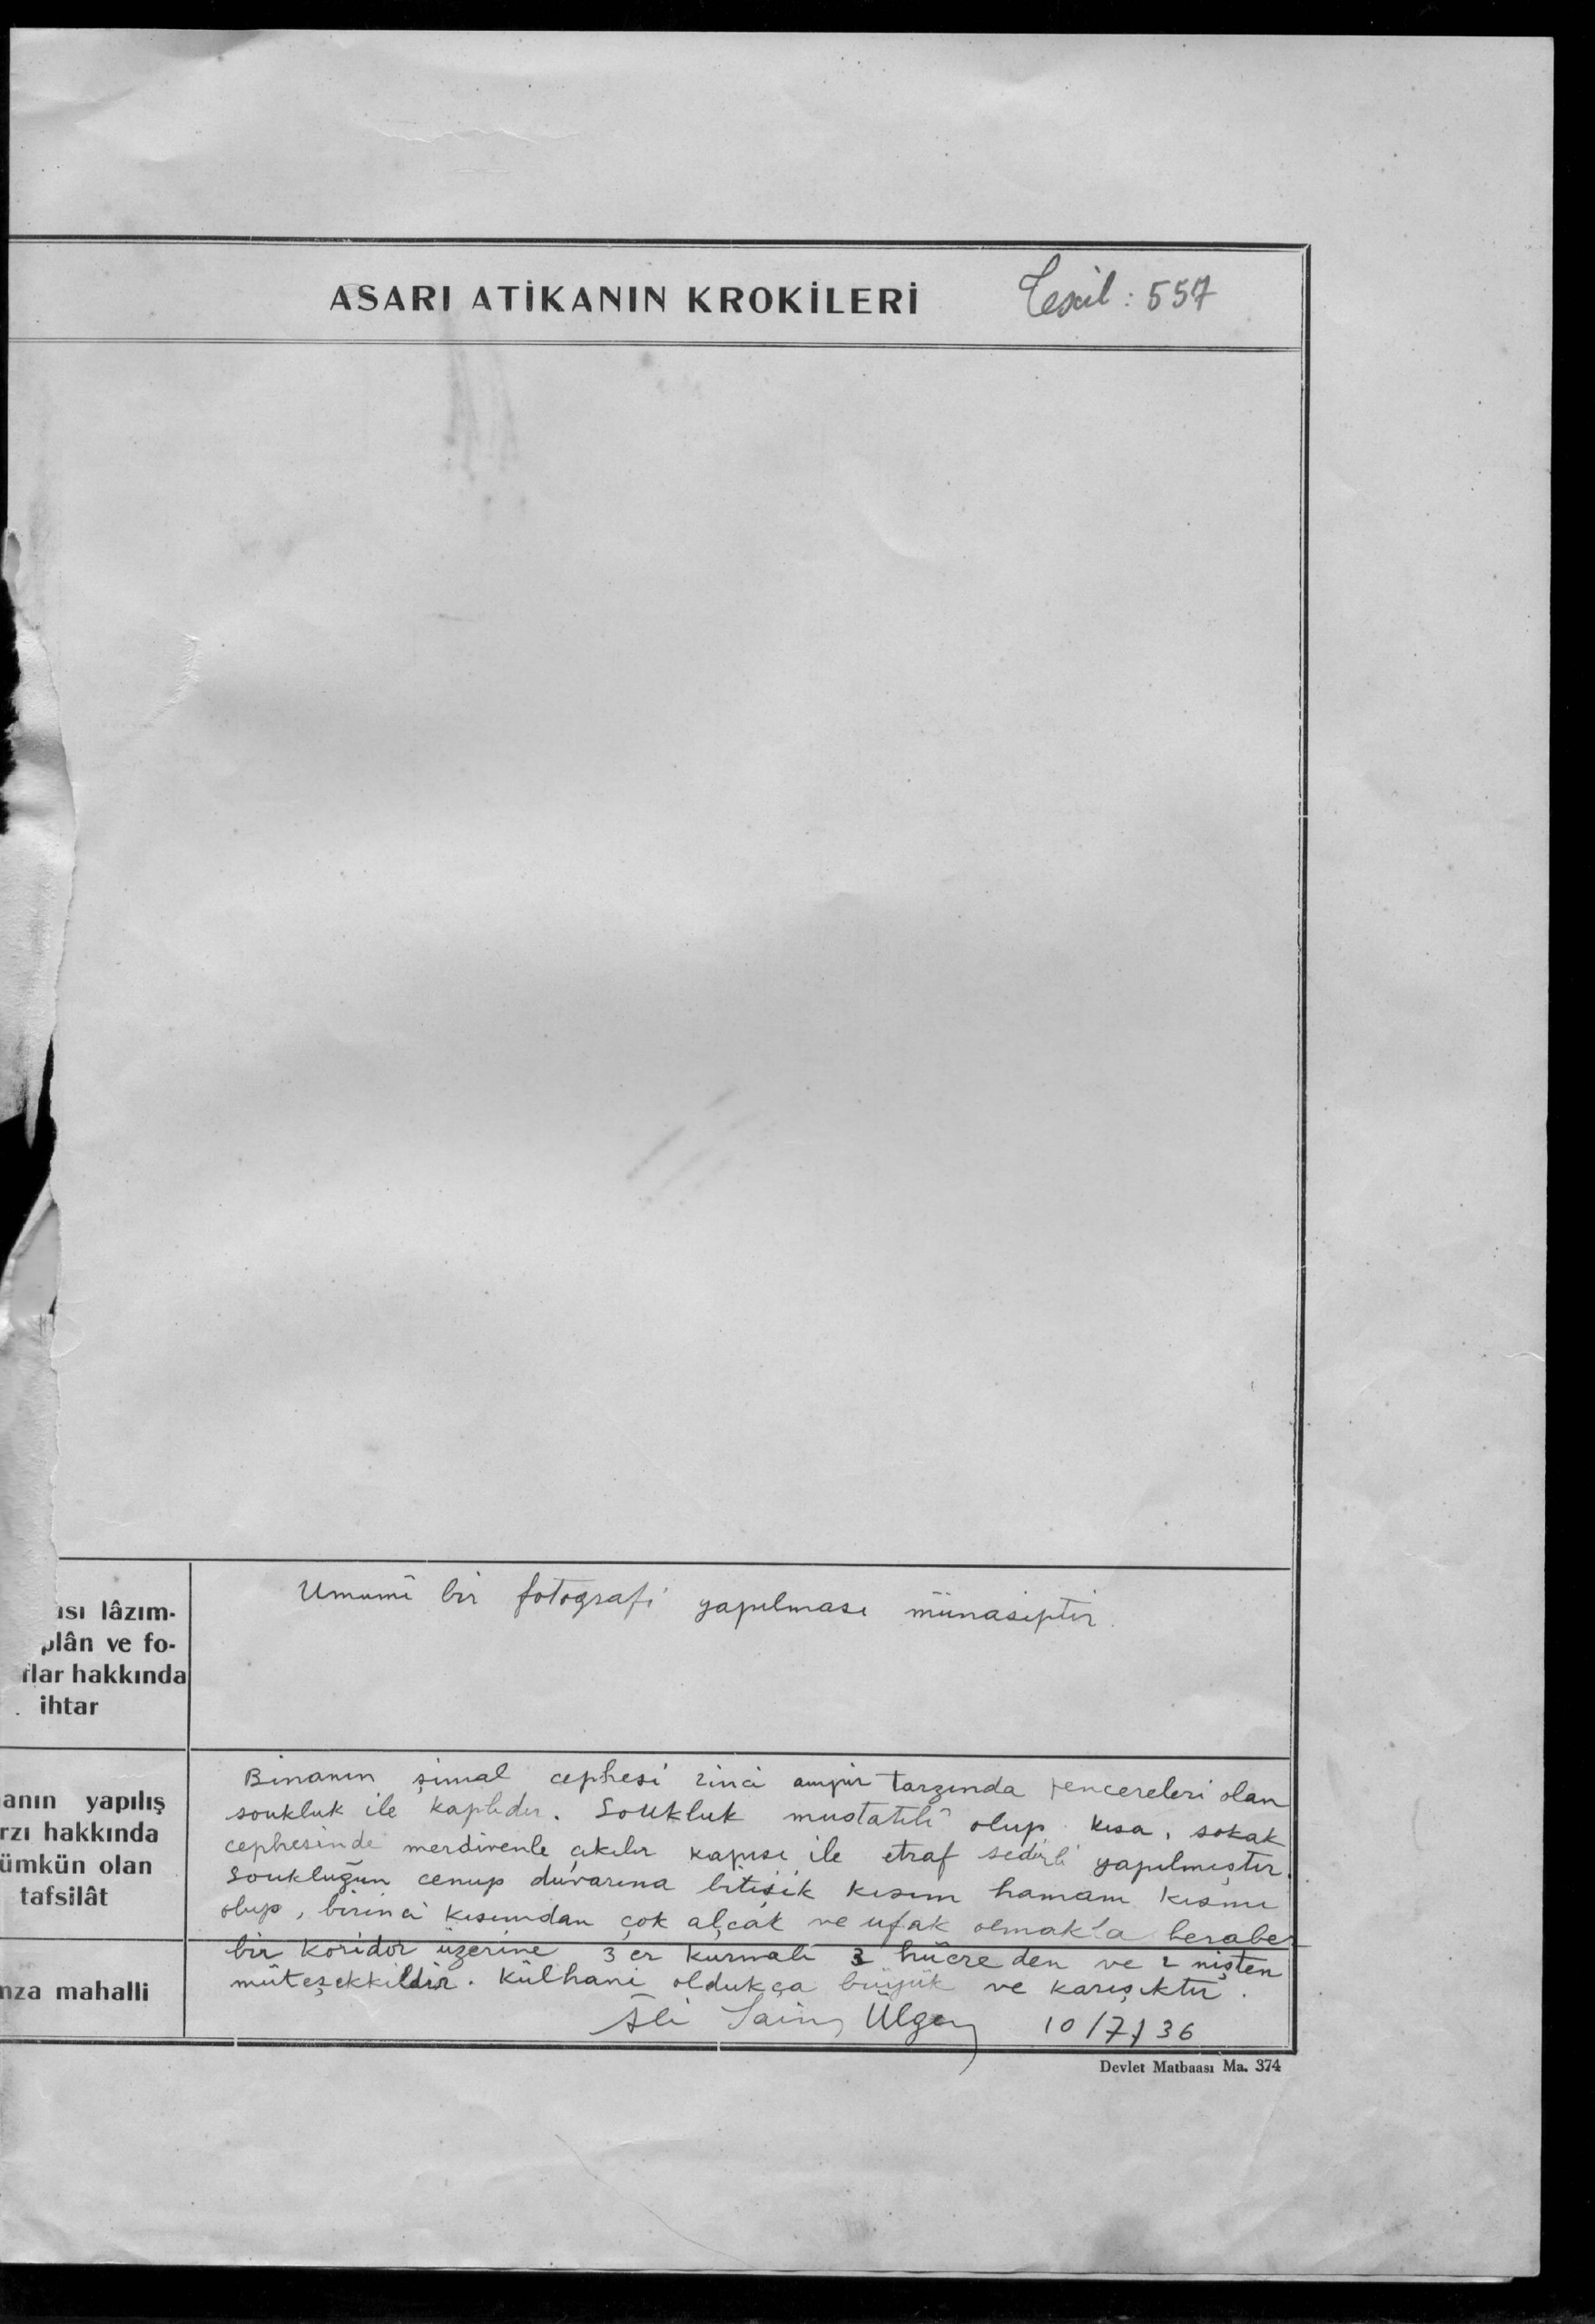 ASARI ATİKANIN KROKİLERİ
Tescil : 557
ısı lâzım-
plân ve fo-
flar hakkında
ihtar
Umumî bir fotografi yapılması münasiptir.
anın yapılış
rzı hakkında
ümkün olan
tafsilât
Binanın şimal cephesi 2inci ampir tarzında pencereleri olan
soukluk ile kaplıdır. Soukluk mustatili olup kısa, sokak
cephesinde merdivenle çıkılır kapısı ile etraf sedirli yapılmıştır.
Soukluğun cenup duvarına bitişik kısım hamam kısmı
olup, birinci kısımdan çok alçak ve ufak olmakla beraber
bir koridor üzerine 3 er kurnalı 3 hücreden ve 2 nişten
müteşekkildir. Külhani oldukça büyük ve karışıktır.
mza mahalli
Ali Saim Ülgen 10/7/36
Devlet Matbaası Ma. 374